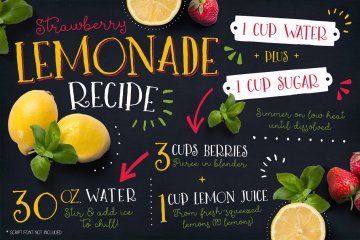 Strawberry
LEMONADE
RECIPE
1 CUP WATER
+ PLUS +
1 CUP SUGAR
Simmer on low heat
until dissolved
3 CUPS BERRIES
Puree in blender
+
1 CUP LEMON JUICE
From fresh-squeezed
lemons (10 lemons)
30 OZ. WATER
Stir & add ice
to chill!
* SCRIPT FONT NOT INCLUDED